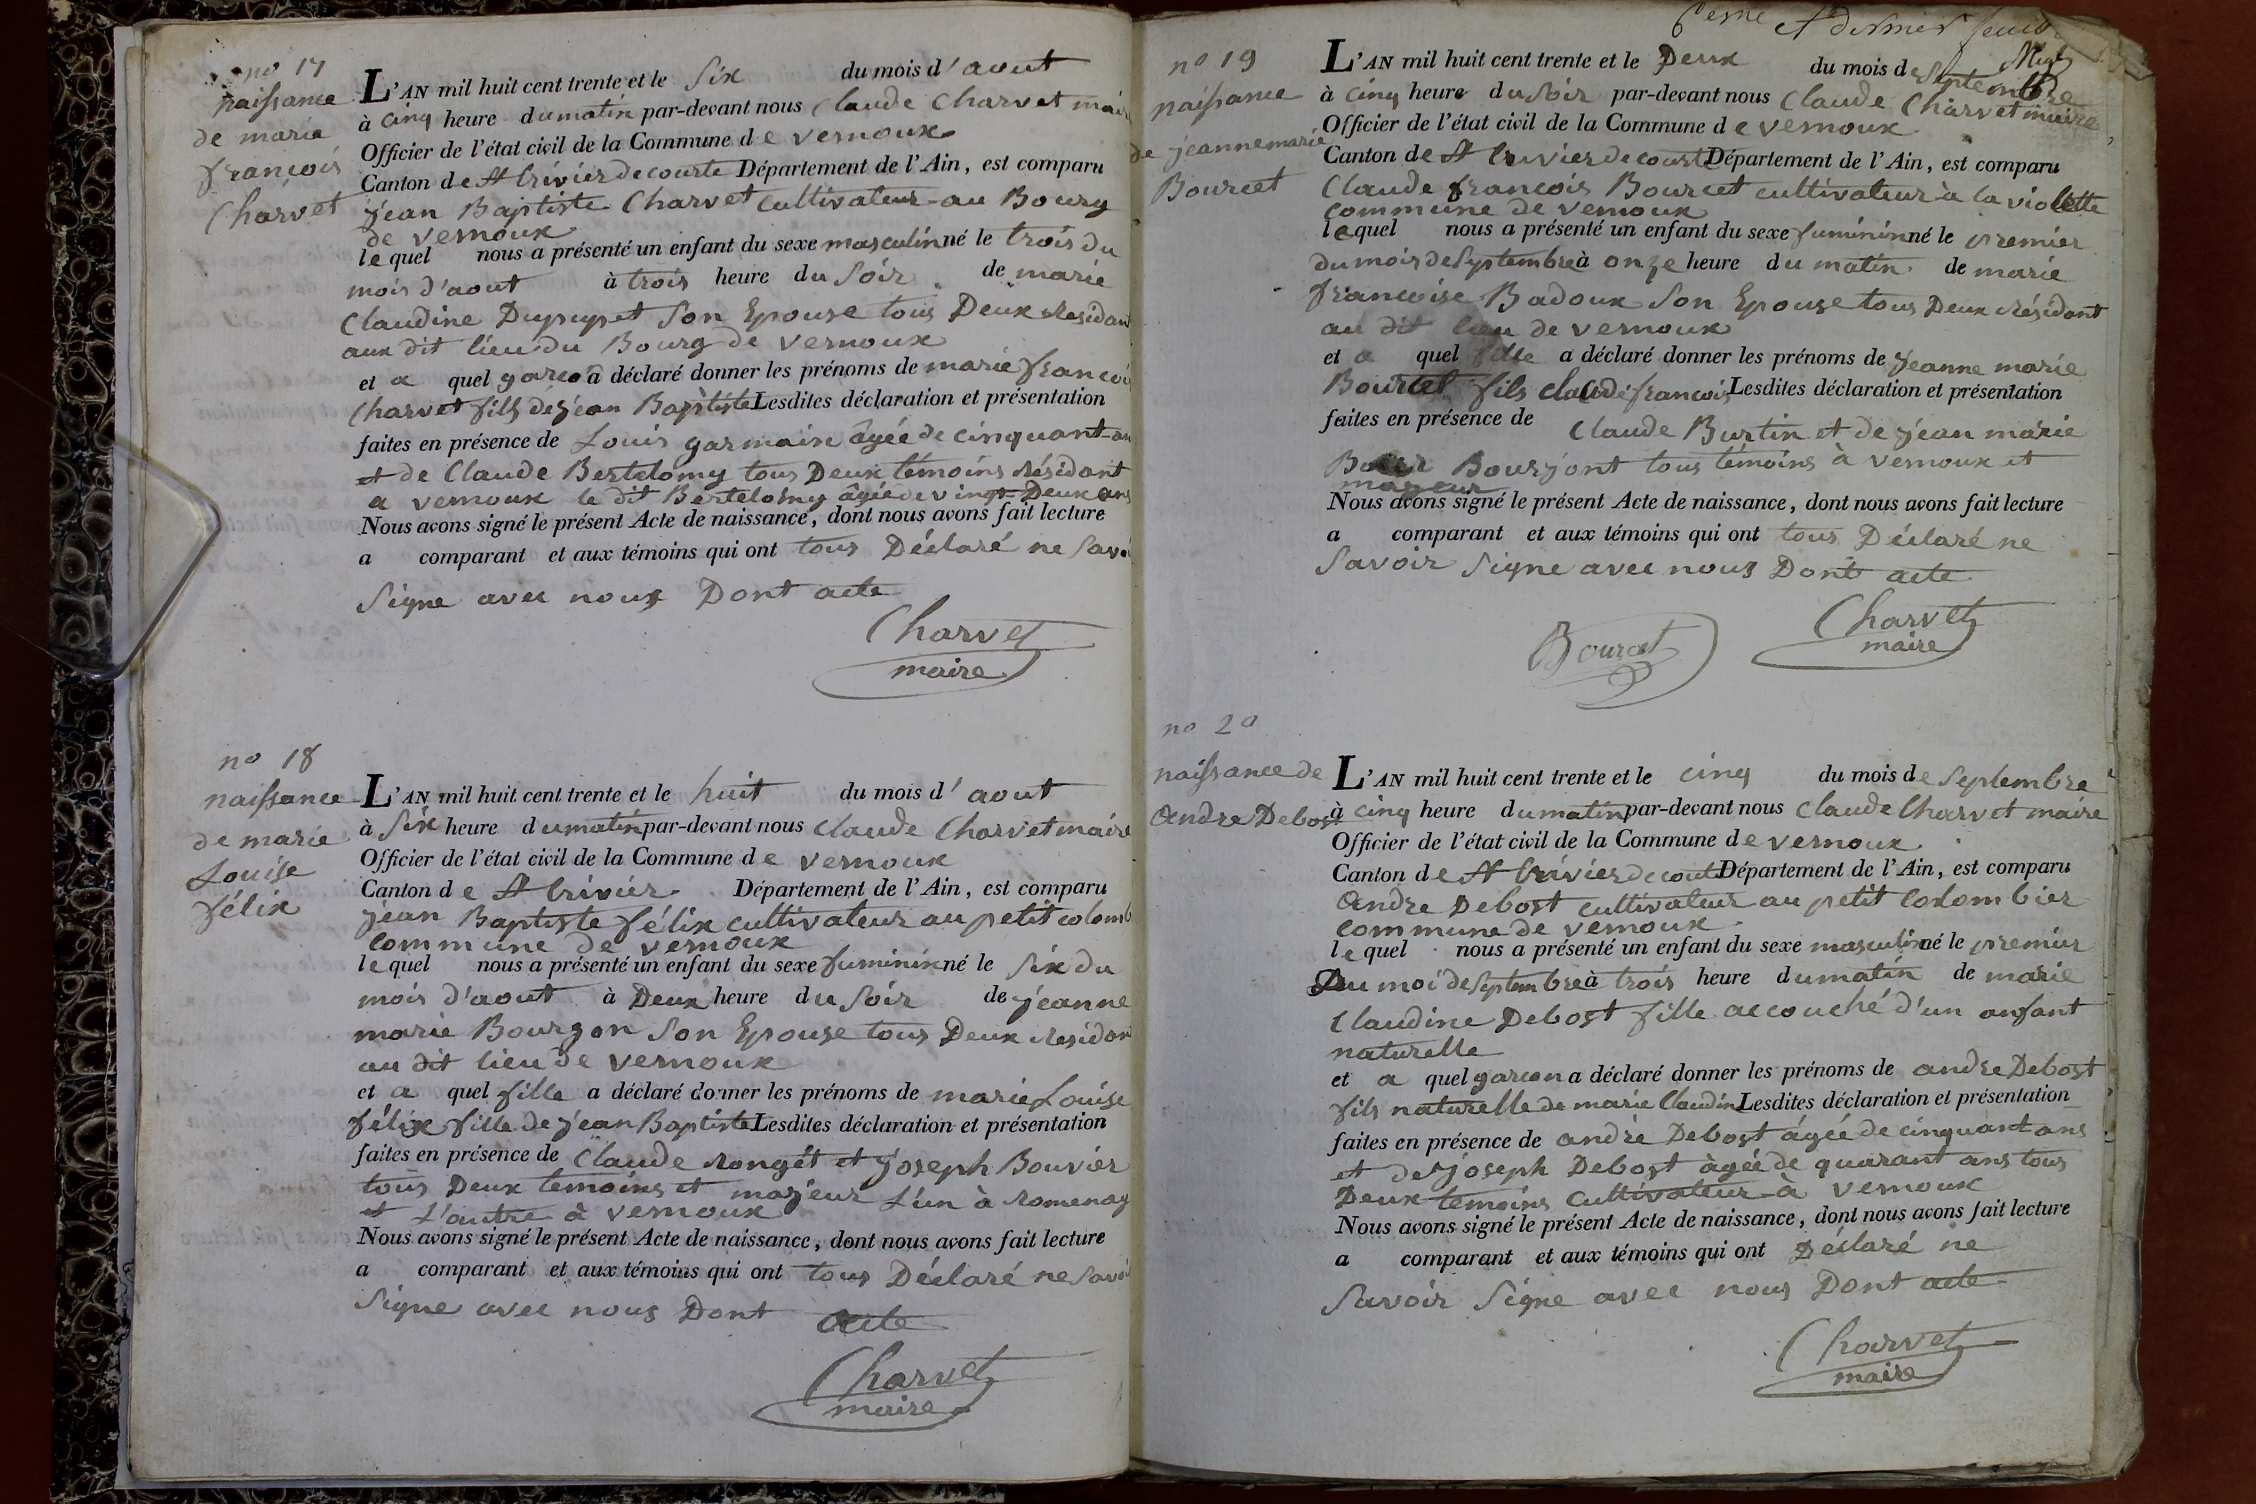 no 17
naissance
de marie
françois
Charvet
L'AN mil huit cent trente et le Six du mois d'aout
à cinq heure du matin par-devant nous Claude Charvet maire
Officier de l'état civil de la Commune de vernoux
Canton de St trivier de courte Département de l'Ain, est comparu
jean Baptiste Charvet cultivateur au Bourg
de vernoux
lequel nous a présenté un enfant du sexe masculin né le trois du
mois d'aout à trois heure du Soir de marie
Claudine Dupupet Son Epouse tous Deux Residant
aux dit lieu du Bourg de vernoux
et a quel garcon a déclaré donner les prénoms de marie françois
Charvet fils de jean Baptiste Lesdites déclaration et présentation
faites en présence de Louis garmain âgée de cinquant an
et de Claude Bertelomy tous Deux témoins résidant
a vernoux le dit Bertelomy âgée de vingt Deux ans
Nous avons signé le présent Acte de naissance, dont nous avons fait lecture
a comparant et aux témoins qui ont tous Déclaré ne Savoi
Signe avec nous Dont acte
Charvet
maire
no 18
naissance
de marie
Louise
félix
L'AN mil huit cent trente et le huit du mois d'aout
à Six heure du matin par-devant nous Claude Charvet maire
Officier de l'état civil de la Commune de vernoux
Canton de St trivier Département de l'Ain, est comparu
jean Baptiste félix cultivateur au petit colomb
commune de vernoux
lequel nous a présenté un enfant du sexe fuminin né le Six du
mois d'aout à Deux heure du Soir de jeanne
marie Bourgon Son Epouse tous Deux residan
au dit lieu de vernoux
et a quel fille a déclaré donner les prénoms de marie Louise
félix fille de jean Baptiste Lesdites déclaration et présentation
faites en présence de Claude Rongét et joseph Bouvier
tous Deux temoins et majeur L'un à Romenay
et L'autre à vernoux
Nous avons signé le présent Acte de naissance, dont nous avons fait lecture
a comparant et aux témoins qui ont tous Déclaré ne Savoi
Signe avec nous Dont acte
Charvet
maire
6eme et dernier feuil
no 19
naissance
de jeanne marie
Bourcet
L'AN mil huit cent trente et le Deux du mois de Septembre
à cinq heure du Soir par-devant nous Claude Charvet maire
Officier de l'état civil de la Commune de vernoux
Canton de St trivier de court Département de l'Ain, est comparu
Claude françois Bourcet cultivateur à la violette
commune de vernoux
lequel nous a présenté un enfant du sexe fuminin né le premier
du mois de Septembre à onze heure du matin de marie
francoise Badoux Son Epouse tous Deux résidant
au dit lieu de vernoux
et a quel fille a déclaré donner les prénoms de jeanne marie
Bourcet fils claude françois Lesdites déclaration et présentation
faites en présence de Claude Burtin et de jean marie
Bourjont tous témoins à vernoux et
majeur
Nous avons signé le présent Acte de naissance, dont nous avons fait lecture
a comparant et aux témoins qui ont tous Déclaré ne
Savoir Signe avec nous Dont acte
Bourcet
Charvet
maire
no 20
naissance de
andre Debost
L'AN mil huit cent trente et le cinq du mois de Septembre
à cinq heure du matin par-devant nous Claude Charvet maire
Officier de l'état civil de la Commune de vernoux
Canton de St trivier de court Département de l'Ain, est comparu
andre Debost cultivateur au petit Colombier
commune de vernoux
lequel nous a présenté un enfant du sexe masculin né le premier
Du moi de Septembre à trois heure du matin de marie
Claudine Debost fille accouché d'un anfant
naturelle
et a quel garcon a déclaré donner les prénoms de andre Debost
fils naturelle de marie Claudin Lesdites déclaration et présentation
faites en présence de andre Debost âgée de cinquant ans
et de joseph Debost âgée de quarant ans tous
Deux temoins Cultivateur à vernoux
Nous avons signé le présent Acte de naissance, dont nous avons fait lecture
a comparant et aux témoins qui ont Déclaré ne
Savoir Signe avec nous Dont acte
Charvet
maire